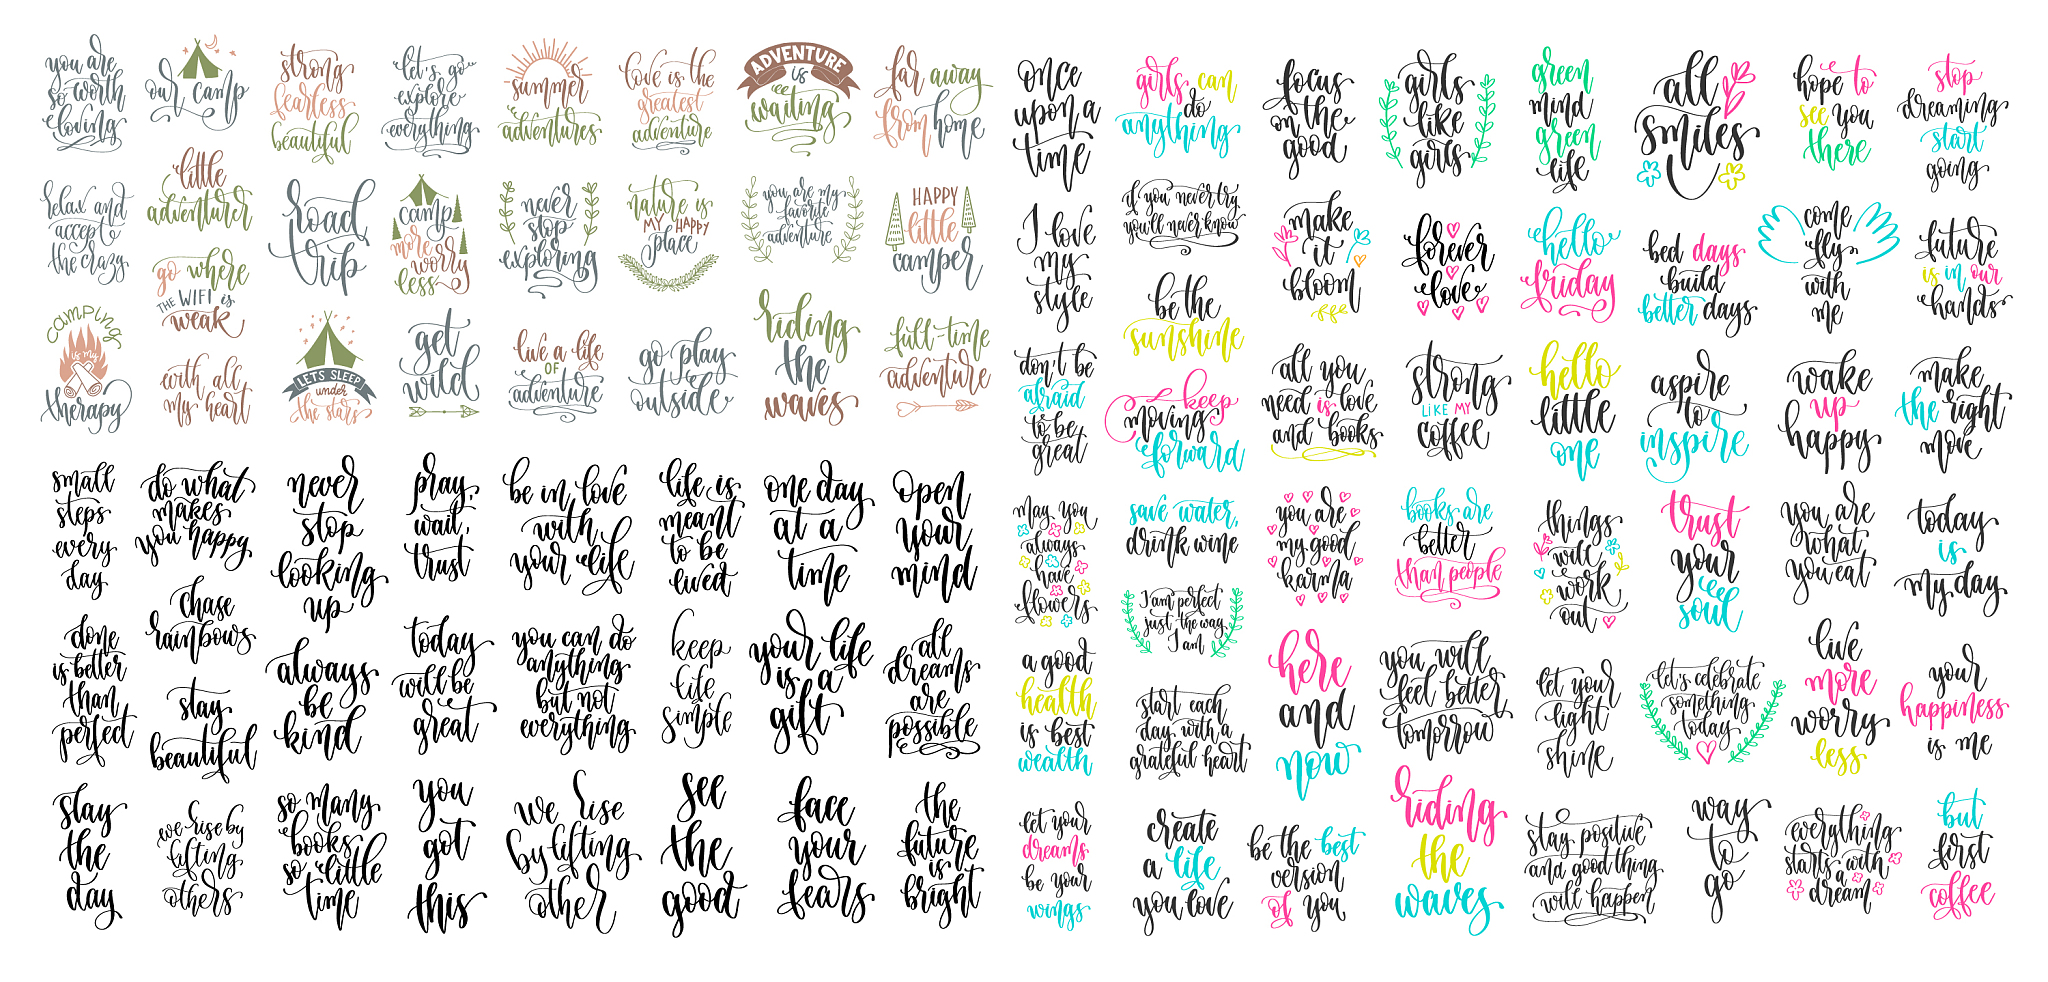 you are
so worth
loving
our camp
strong
fearless
beautiful
let's go
explore
everything
summer
adventures
love is the
greatest
adventure
ADVENTURE
is
waiting
far away
from home
relax and
accept
the crazy
little
adventurer
road
trip
camp
more
worry
less
never
stop
exploring
nature is
MY HAPPY
place
you are my
favorite
adventure
HAPPY
little
camper
go where
THE WIFI is
weak
camping
is my
therapy
with all
my heart
LETS SLEEP
under
the stars
get
wild
live a life
OF
adventure
go play
outside
riding
the
waves
full-time
adventure
small
steps
every
day
do what
makes
you happy
never
stop
looking
up
pray,
wait,
trust
be in love
with
your life
life is
meant
to be
lived
one day
at a
time
open
your
mind
chase
rainbows
done
is better
than
perfect
stay
beautiful
always
be
kind
today
will be
great
you can do
anything
but not
everything
keep
life
simple
your life
is a
gift
all
dreams
are
possible
slay
the
day
we rise by
lifting
others
so many
books
so little
time
you
got
this
we rise
by lifting
other
see
the
good
face
your
fears
the
future
is
bright
once
upon a
time
girls can
do
anything
focus
on the
good
girls
like
girls
green
mind
green
life
all
smiles
hope to
see you
there
stop
dreaming
start
going
I love
my
style
if you never try
you'll never know
make
it
bloom
forever
love
hello
friday
bed days
build
better days
come
fly
with
me
future
is in our
hands
be the
sunshine
don't be
afraid
to be
great
keep
moving
forward
all you
need is love
and books
strong
LIKE MY
coffee
hello
little
one
aspire
to
inspire
wake
up
happy
make
the right
move
may you
always
have
flowers
save water,
drink wine
you are
my good
karma
books are
better
than people
things
will
work
out
trust
your
soul
you are
what
you eat
today
is
my day
I am perfect
just the way
I am
a good
health
is best
wealth
start each
day with a
grateful heart
here
and
now
you will
feel better
tomorrow
let your
light
shine
let's celebrate
something
today
live
more
worry
less
your
happiness
is me
let your
dreams
be your
wings
create
a life
you love
be the best
version
of you
riding
the
waves
stay positive
and good thing
will happen
way
to
go
everything
starts with
a
dream
but
first
coffee